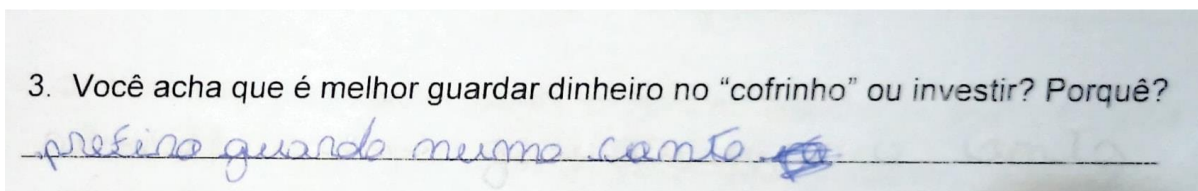 3. Você acha que é melhor guardar dinheiro no “cofrinho” ou investir? Porquê?
prefiro guardo numo canto